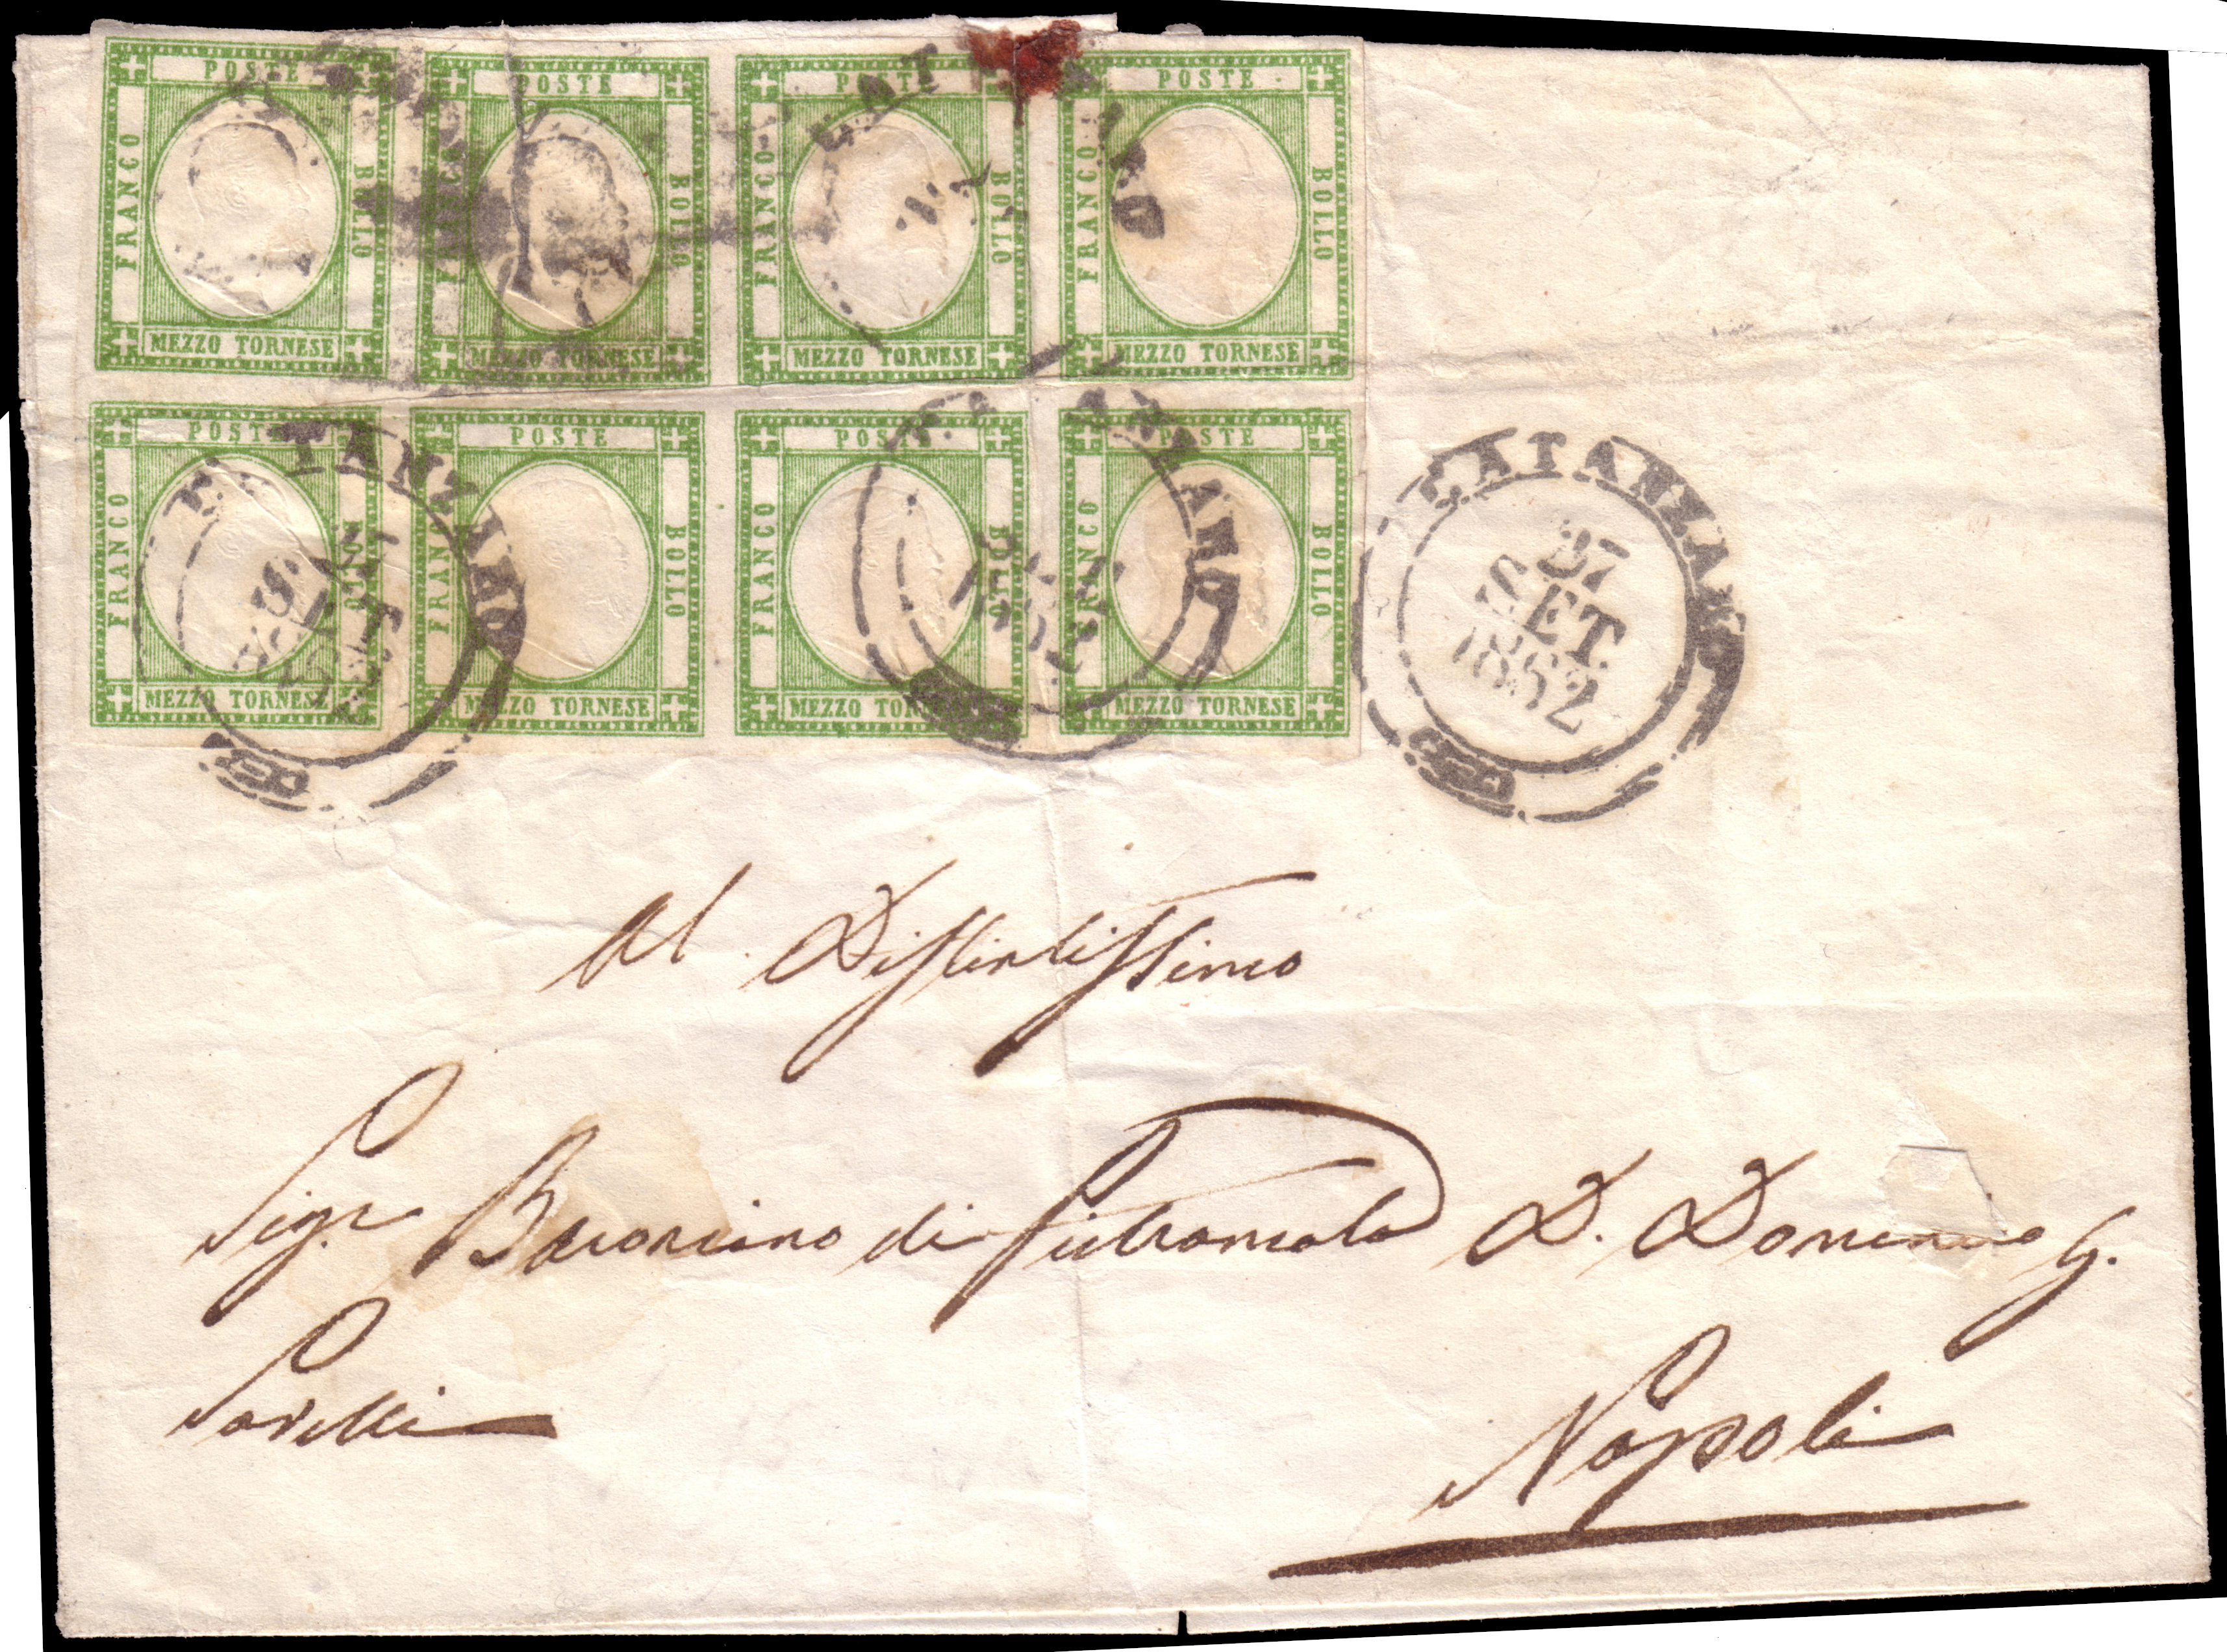 POSTE POSTE POSTE POSTE
FRANCO BOLLO FRANCO BOLLO FRANCO BOLLO FRANCO BOLLO
MEZZO TORNESE MEZZO TORNESE MEZZO TORNESE MEZZO TORNESE
POSTE POSTE POSTE POSTE
FRANCO BOLLO FRANCO BOLLO FRANCO BOLLO FRANCO BOLLO
MEZZO TORNESE MEZZO TORNESE MEZZO TORNESE MEZZO TORNESE
CATANZARO
27
SET.
1862
Al Distintissimo
Sigr Baroncino di Pietramala D. Domenico G.
Napoli